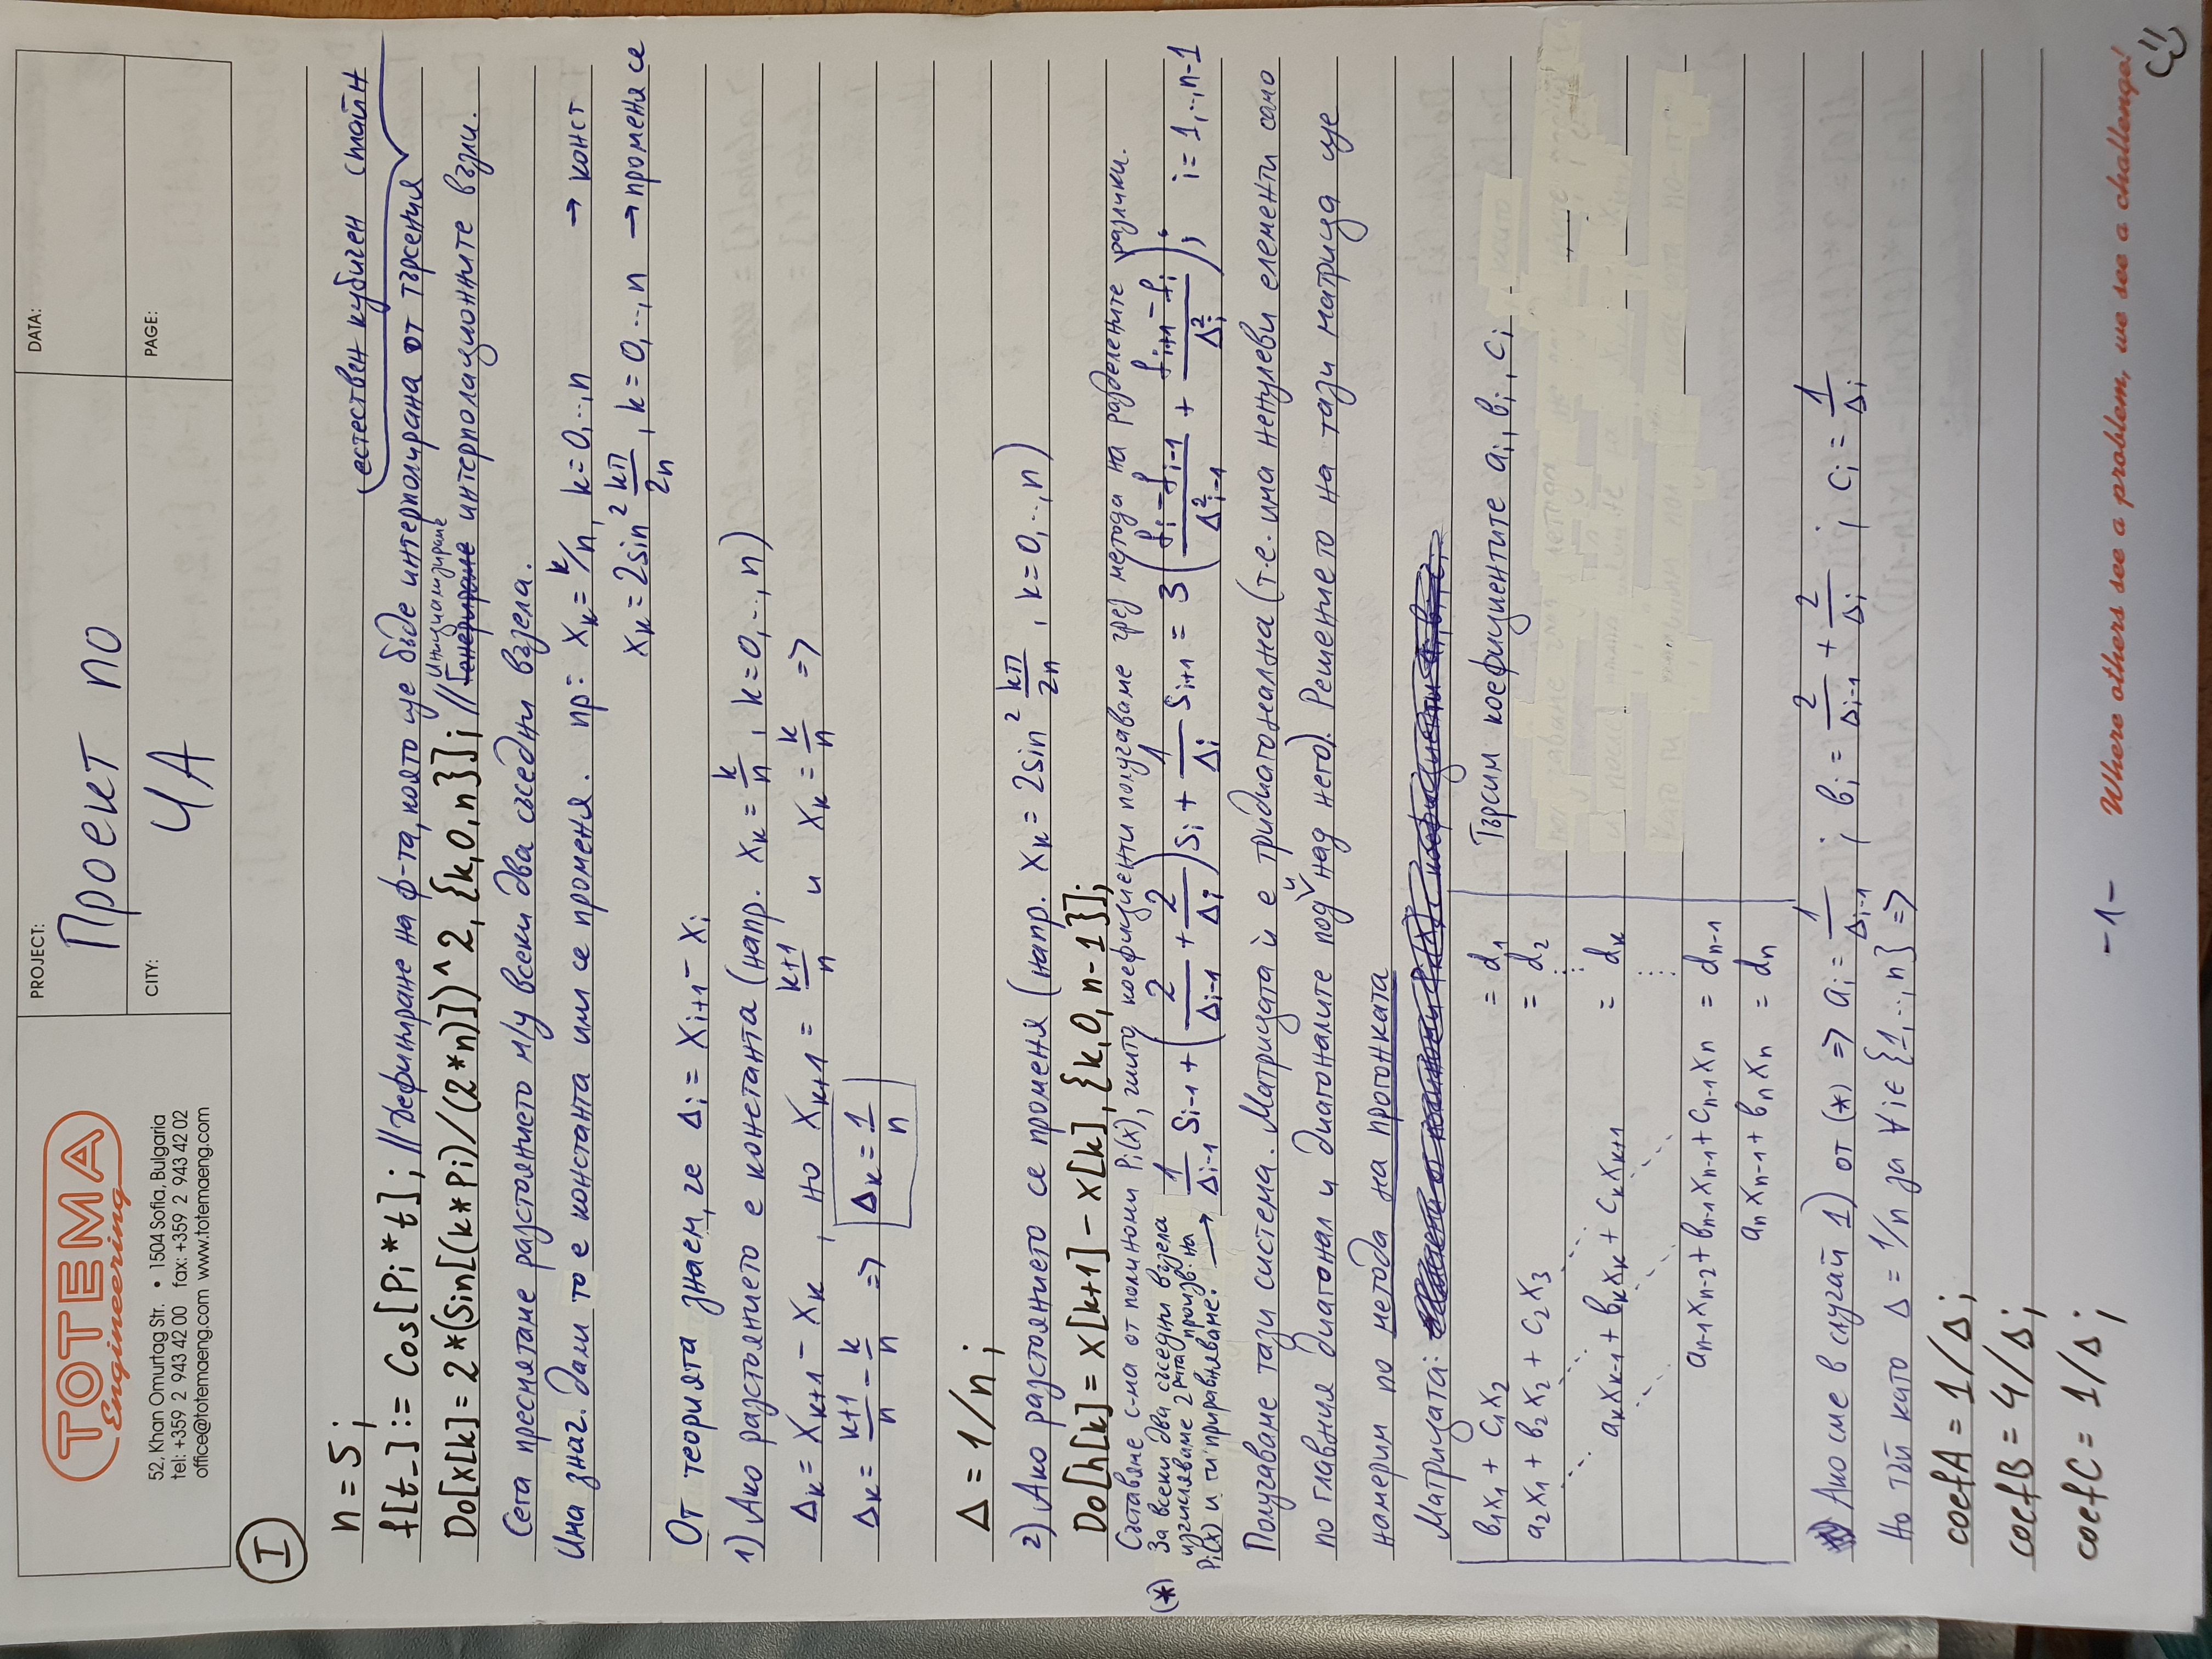 TOTEMA
Engineering
52, Khan Omurtag Str. • 1504 Sofia, Bulgaria
tel: +359 2 943 42 00 fax: +359 2 943 42 02
office@totemaeng.com www.totemaeng.com
PROJECT:
Проект по
CITY:
ЧА
DATA:
PAGE:
I
n = 5;
естествен кубичен сплайн
f[t_] := Cos[Pi*t]; //Дефиниране на ф-та, която ще бъде интерполирана от търсения
Инициализиране
Do[x[k] = 2*(Sin[(k*Pi)/(2*n)])^2, {k,0,n}]; //Генериране интерполационните възли.
Сега пресмятаме разстоянието м/у всеки два съседни възела.
Има знач. дали то е константа или се променя. пр: xk = k/n, k=0,..,n → конст
xk = 2sin² kπ/2n, k=0,..,n → променя се
От теорията знаем, че Δi = xi+1 − xi
1) Ако разстоянието е константа (напр. xk = k/n, k=0,..,n)
Δk = xk+1 − xk, но xk+1 = k+1/n и xk = k/n =>
Δk = k+1/n − k/n => Δk = 1/n
Δ = 1/n;
2) Ако разстоянието се променя (напр. xk = 2sin² kπ/2n, k=0,..,n)
Do[h[k] = x[k+1] − x[k], {k,0,n-1}];
Съставяме с-ма от полиноми Pi(x), чиито коефициенти получаваме чрез метода на разделените разлики.
(*) За всеки два съседни възела
изчисляваме 2рата произв. на
Pi(x) и ги приравняваме: → 1/Δi−1 Si−1 + (2/Δi−1 + 2/Δi) Si + 1/Δi Si+1 = 3(fi−fi−1/Δ²i−1 + fi+1−fi/Δ²i); i=1,..,n-1
Получаваме тази система. Матрицата ѝ е тридиагонална (т.е. има ненулеви елементи само
по главния диагонал и диагоналите под и над него). Решението на тази матрица ще
намерим по метода на прогонката
Матрицата:
b1x1 + c1x2 = d1
a2x1 + b2x2 + c2x3 = d2
akxk−1 + bkxk + ckxk+1 = dk
an−1xn−2 + bn−1xn−1 + cn−1xn = dn−1
anxn−1 + bnxn = dn
Търсим коефициентите ai, bi, ci
Ако сме в случай 1) от (*) => ai = 1/Δi−1; bi = 2/Δi−1 + 2/Δi; ci = 1/Δi
Но тъй като Δ = 1/n за ∀i∈{1,..,n} =>
coefA = 1/Δ;
coefB = 4/Δ;
coefC = 1/Δ;
-1-
Where others see a problem, we see a challenge!